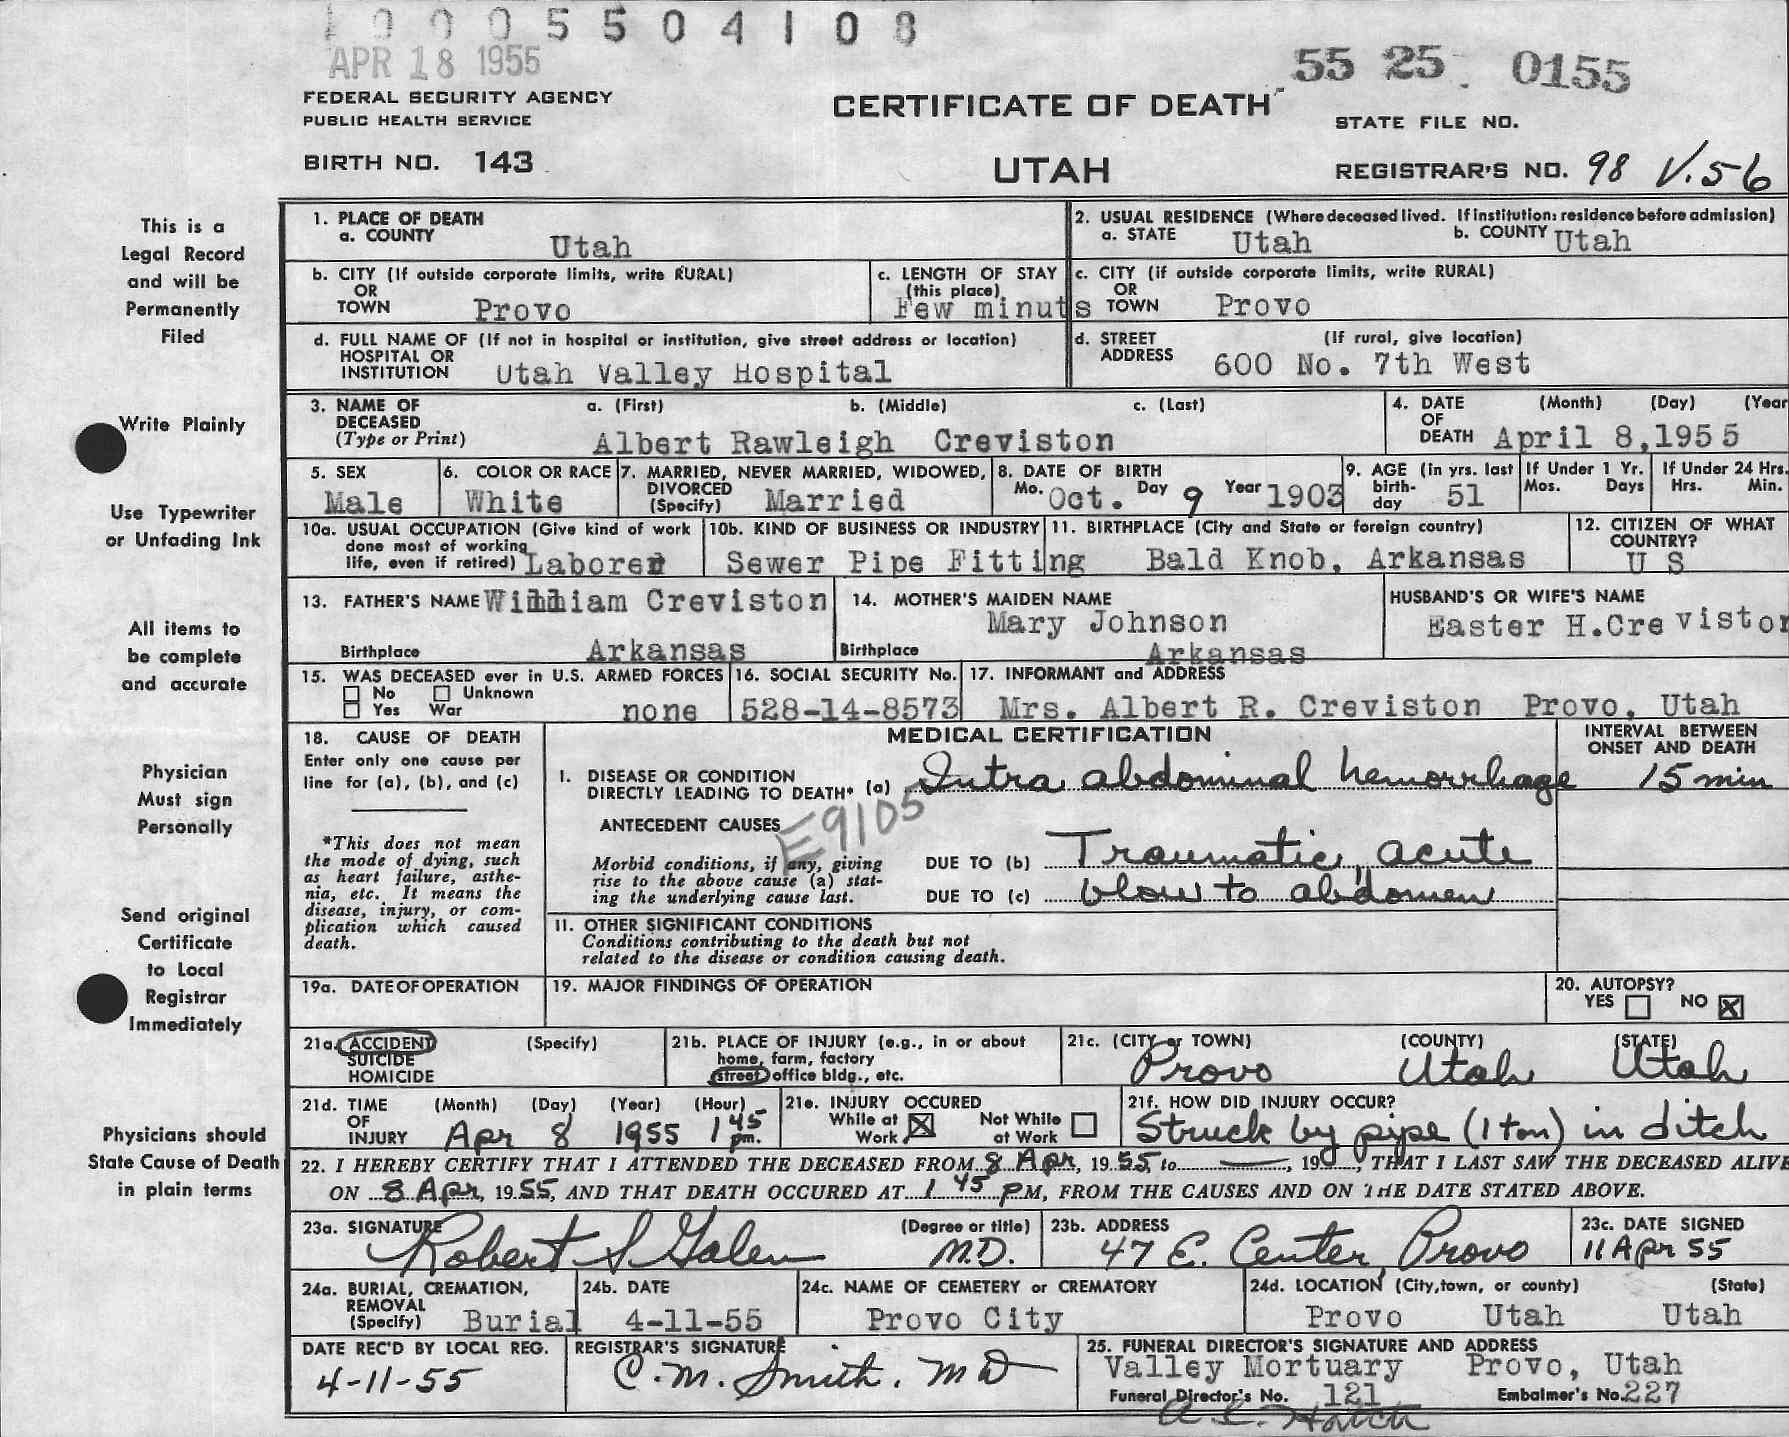 1 0 0 0 5 5 0 4 1 0 8
APR 18 1955
55 25 0155
FEDERAL SECURITY AGENCY
PUBLIC HEALTH SERVICE
CERTIFICATE OF DEATH
STATE FILE NO.
BIRTH NO. 143
UTAH
REGISTRAR'S NO. 98 V.56
This is a
Legal Record
and will be
Permanently
Filed
Write Plainly
Use Typewriter
or Unfading Ink
All items to
be complete
and accurate
Physician
Must sign
Personally
Send original
Certificate
to Local
Registrar
Immediately
Physicians should
State Cause of Death
in plain terms
1. PLACE OF DEATH
a. COUNTY Utah
2. USUAL RESIDENCE (Where deceased lived. If institution: residence before admission)
a. STATE Utah b. COUNTY Utah
b. CITY (If outside corporate limits, write RURAL)
OR
TOWN Provo
c. LENGTH OF STAY
(this place)
Few minuts
c. CITY (if outside corporate limits, write RURAL)
OR
TOWN Provo
d. FULL NAME OF (If not in hospital or institution, give street address or location)
HOSPITAL OR
INSTITUTION Utah Valley Hospital
d. STREET (If rural, give location)
ADDRESS 600 No. 7th West
3. NAME OF a. (First) b. (Middle) c. (Last)
DECEASED
(Type or Print) Albert Rawleigh Creviston
4. DATE (Month) (Day) (Year
OF
DEATH April 8,1955
5. SEX
Male
6. COLOR OR RACE
White
7. MARRIED, NEVER MARRIED, WIDOWED,
DIVORCED
(Specify) Married
8. DATE OF BIRTH
Mo. Oct. Day 9 Year 1903
9. AGE (in yrs. last
birth-
day 51
If Under 1 Yr.
Mos. Days
If Under 24 Hrs.
Hrs. Min.
10a. USUAL OCCUPATION (Give kind of work
done most of working
life, even if retired) Laborer
10b. KIND OF BUSINESS OR INDUSTRY
Sewer Pipe Fitting
11. BIRTHPLACE (City and State or foreign country)
Bald Knob, Arkansas
12. CITIZEN OF WHAT
COUNTRY?
U S
13. FATHER'S NAME William Creviston
Birthplace Arkansas
14. MOTHER'S MAIDEN NAME
Mary Johnson
Birthplace Arkansas
HUSBAND'S OR WIFE'S NAME
Easter H.Creviston
15. WAS DECEASED ever in U.S. ARMED FORCES
No Unknown
Yes War none
16. SOCIAL SECURITY No.
528-14-8573
17. INFORMANT and ADDRESS
Mrs. Albert R. Creviston Provo, Utah
18. CAUSE OF DEATH
Enter only one cause per
line for (a), (b), and (c)
*This does not mean
the mode of dying, such
as heart failure, asthe-
nia, etc. It means the
disease, injury, or com-
plication which caused
death.
MEDICAL CERTIFICATION
INTERVAL BETWEEN
ONSET AND DEATH
I. DISEASE OR CONDITION
DIRECTLY LEADING TO DEATH* (a) Intra abdominal hemorrhage 15 min
ANTECEDENT CAUSES E9105
Morbid conditions, if any, giving
rise to the above cause (a) stat-
ing the underlying cause last.
DUE TO (b) Traumatic, acute
DUE TO (c) blow to abdomen
11. OTHER SIGNIFICANT CONDITIONS
Conditions contributing to the death but not
related to the disease or condition causing death.
19a. DATE OF OPERATION
19. MAJOR FINDINGS OF OPERATION
20. AUTOPSY?
YES NO X
21a. ACCIDENT (Specify)
SUICIDE
HOMICIDE
21b. PLACE OF INJURY (e.g., in or about
home, farm, factory
street office bldg., etc.
21c. (CITY or TOWN) (COUNTY) (STATE)
Provo Utah Utah
21d. TIME (Month) (Day) (Year) (Hour)
OF
INJURY Apr 8 1955 1 45 pm.
21e. INJURY OCCURED
While at Work X Not While at Work
21f. HOW DID INJURY OCCUR?
Struck by pipe (1 ton) in ditch
22. I HEREBY CERTIFY THAT I ATTENDED THE DECEASED FROM 8 Apr, 19 55, to —, 19 , THAT I LAST SAW THE DECEASED ALIVE
ON 8 Apr, 19 55, AND THAT DEATH OCCURED AT 1 45 PM, FROM THE CAUSES AND ON THE DATE STATED ABOVE.
23a. SIGNATURE (Degree or title)
Robert S Galen M.D.
23b. ADDRESS
47 E. Center, Provo
23c. DATE SIGNED
11 Apr 55
24a. BURIAL, CREMATION,
REMOVAL
(Specify) Burial
24b. DATE
4-11-55
24c. NAME OF CEMETERY or CREMATORY
Provo City
24d. LOCATION (City,town, or county) (State)
Provo Utah Utah
DATE REC'D BY LOCAL REG.
4-11-55
REGISTRAR'S SIGNATURE
C. M. Smith, M D
25. FUNERAL DIRECTOR'S SIGNATURE AND ADDRESS
Valley Mortuary Provo, Utah
Funeral Director's No. 121 Embalmer's No.227
Hatch